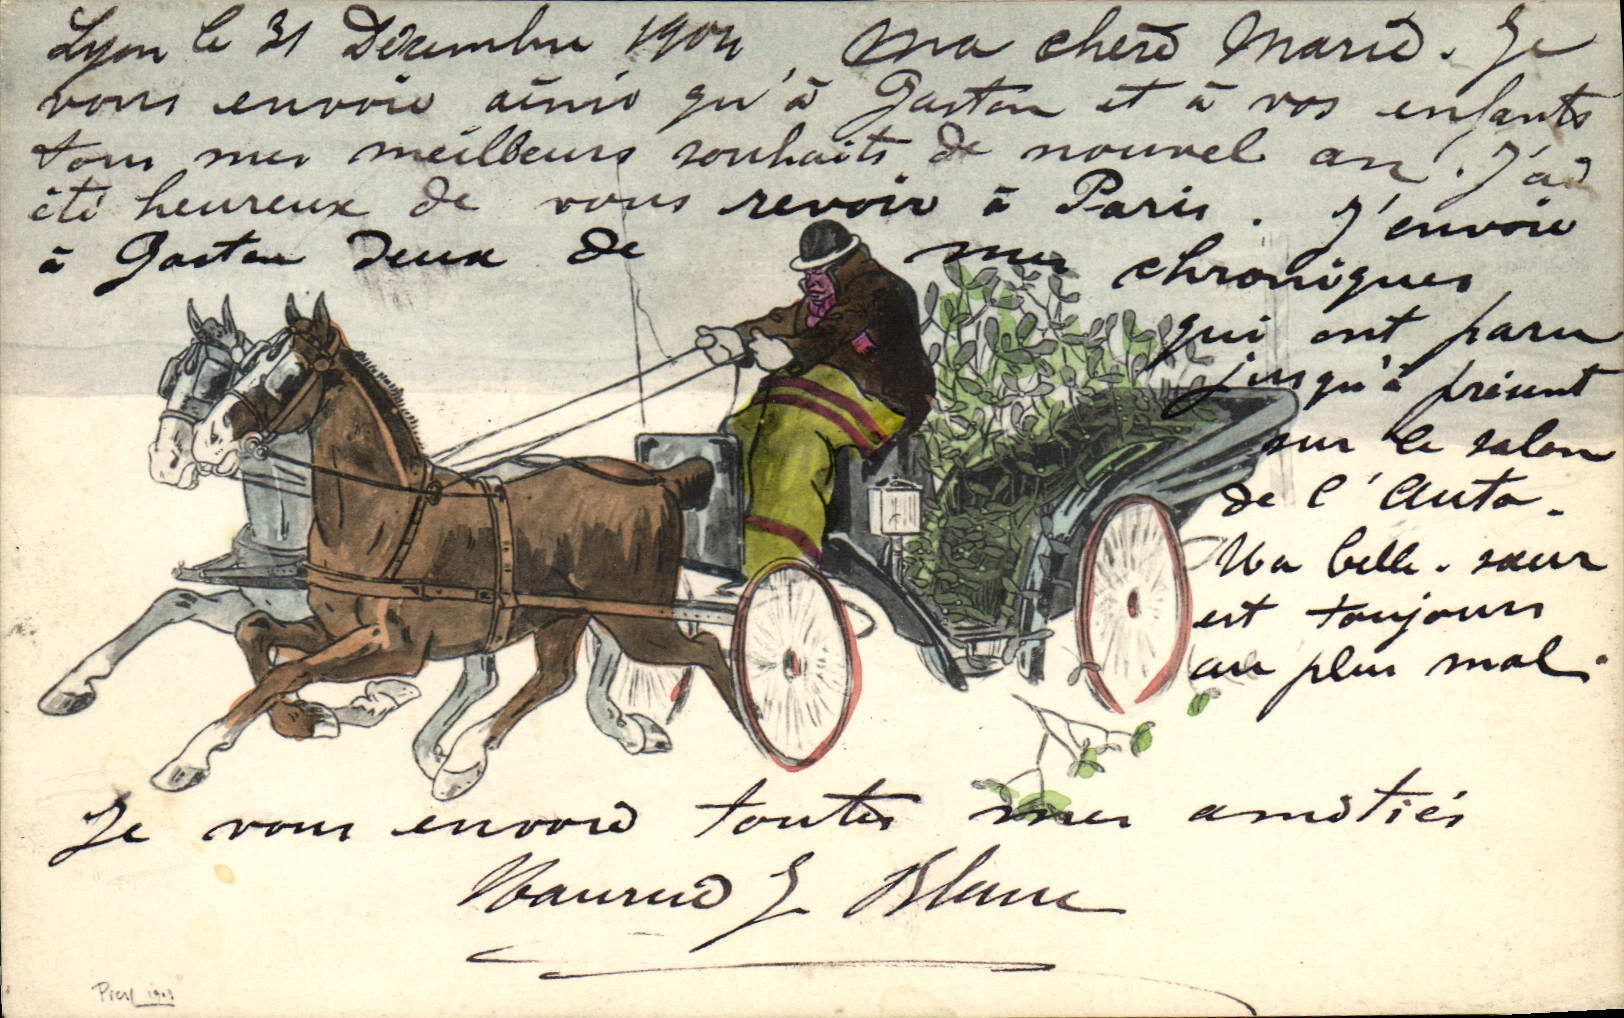 Lyon le 31 Décembre 1904 Ma chère Marie. Je
vous envoie ainsi qu'à Gaston et à vos enfants
tous mes meilleurs souhaits de nouvel an. J'ai
été heureux de vous revoir à Paris. J'envoie
à Gaston deux de mes chroniques
qui ont paru
jusqu'à présent
sur le salon
de l'Auto.
Ma belle-soeur
est toujours
au plus mal.
Je vous envoie toutes mes amitiés
Maurice J Blanc